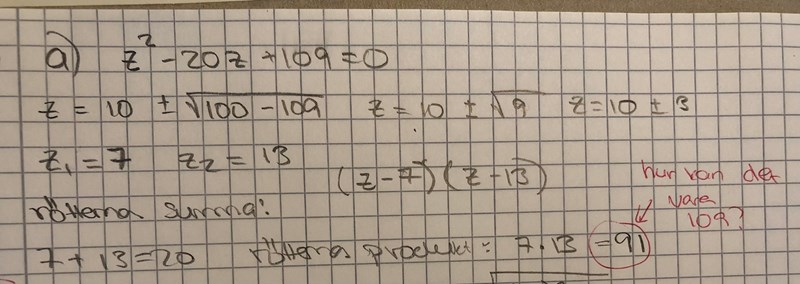 a) z² - 20z + 109 = 0
z = 10 ± √(100 - 109) z = 10 ± √9 z = 10 ± 3
z₁ = 7 z₂ = 13 (z - 7)(z - 13)
rötterna summa:
7 + 13 = 20 rötterna produkt: 7·13 = 91
hur kan det
vara
109?